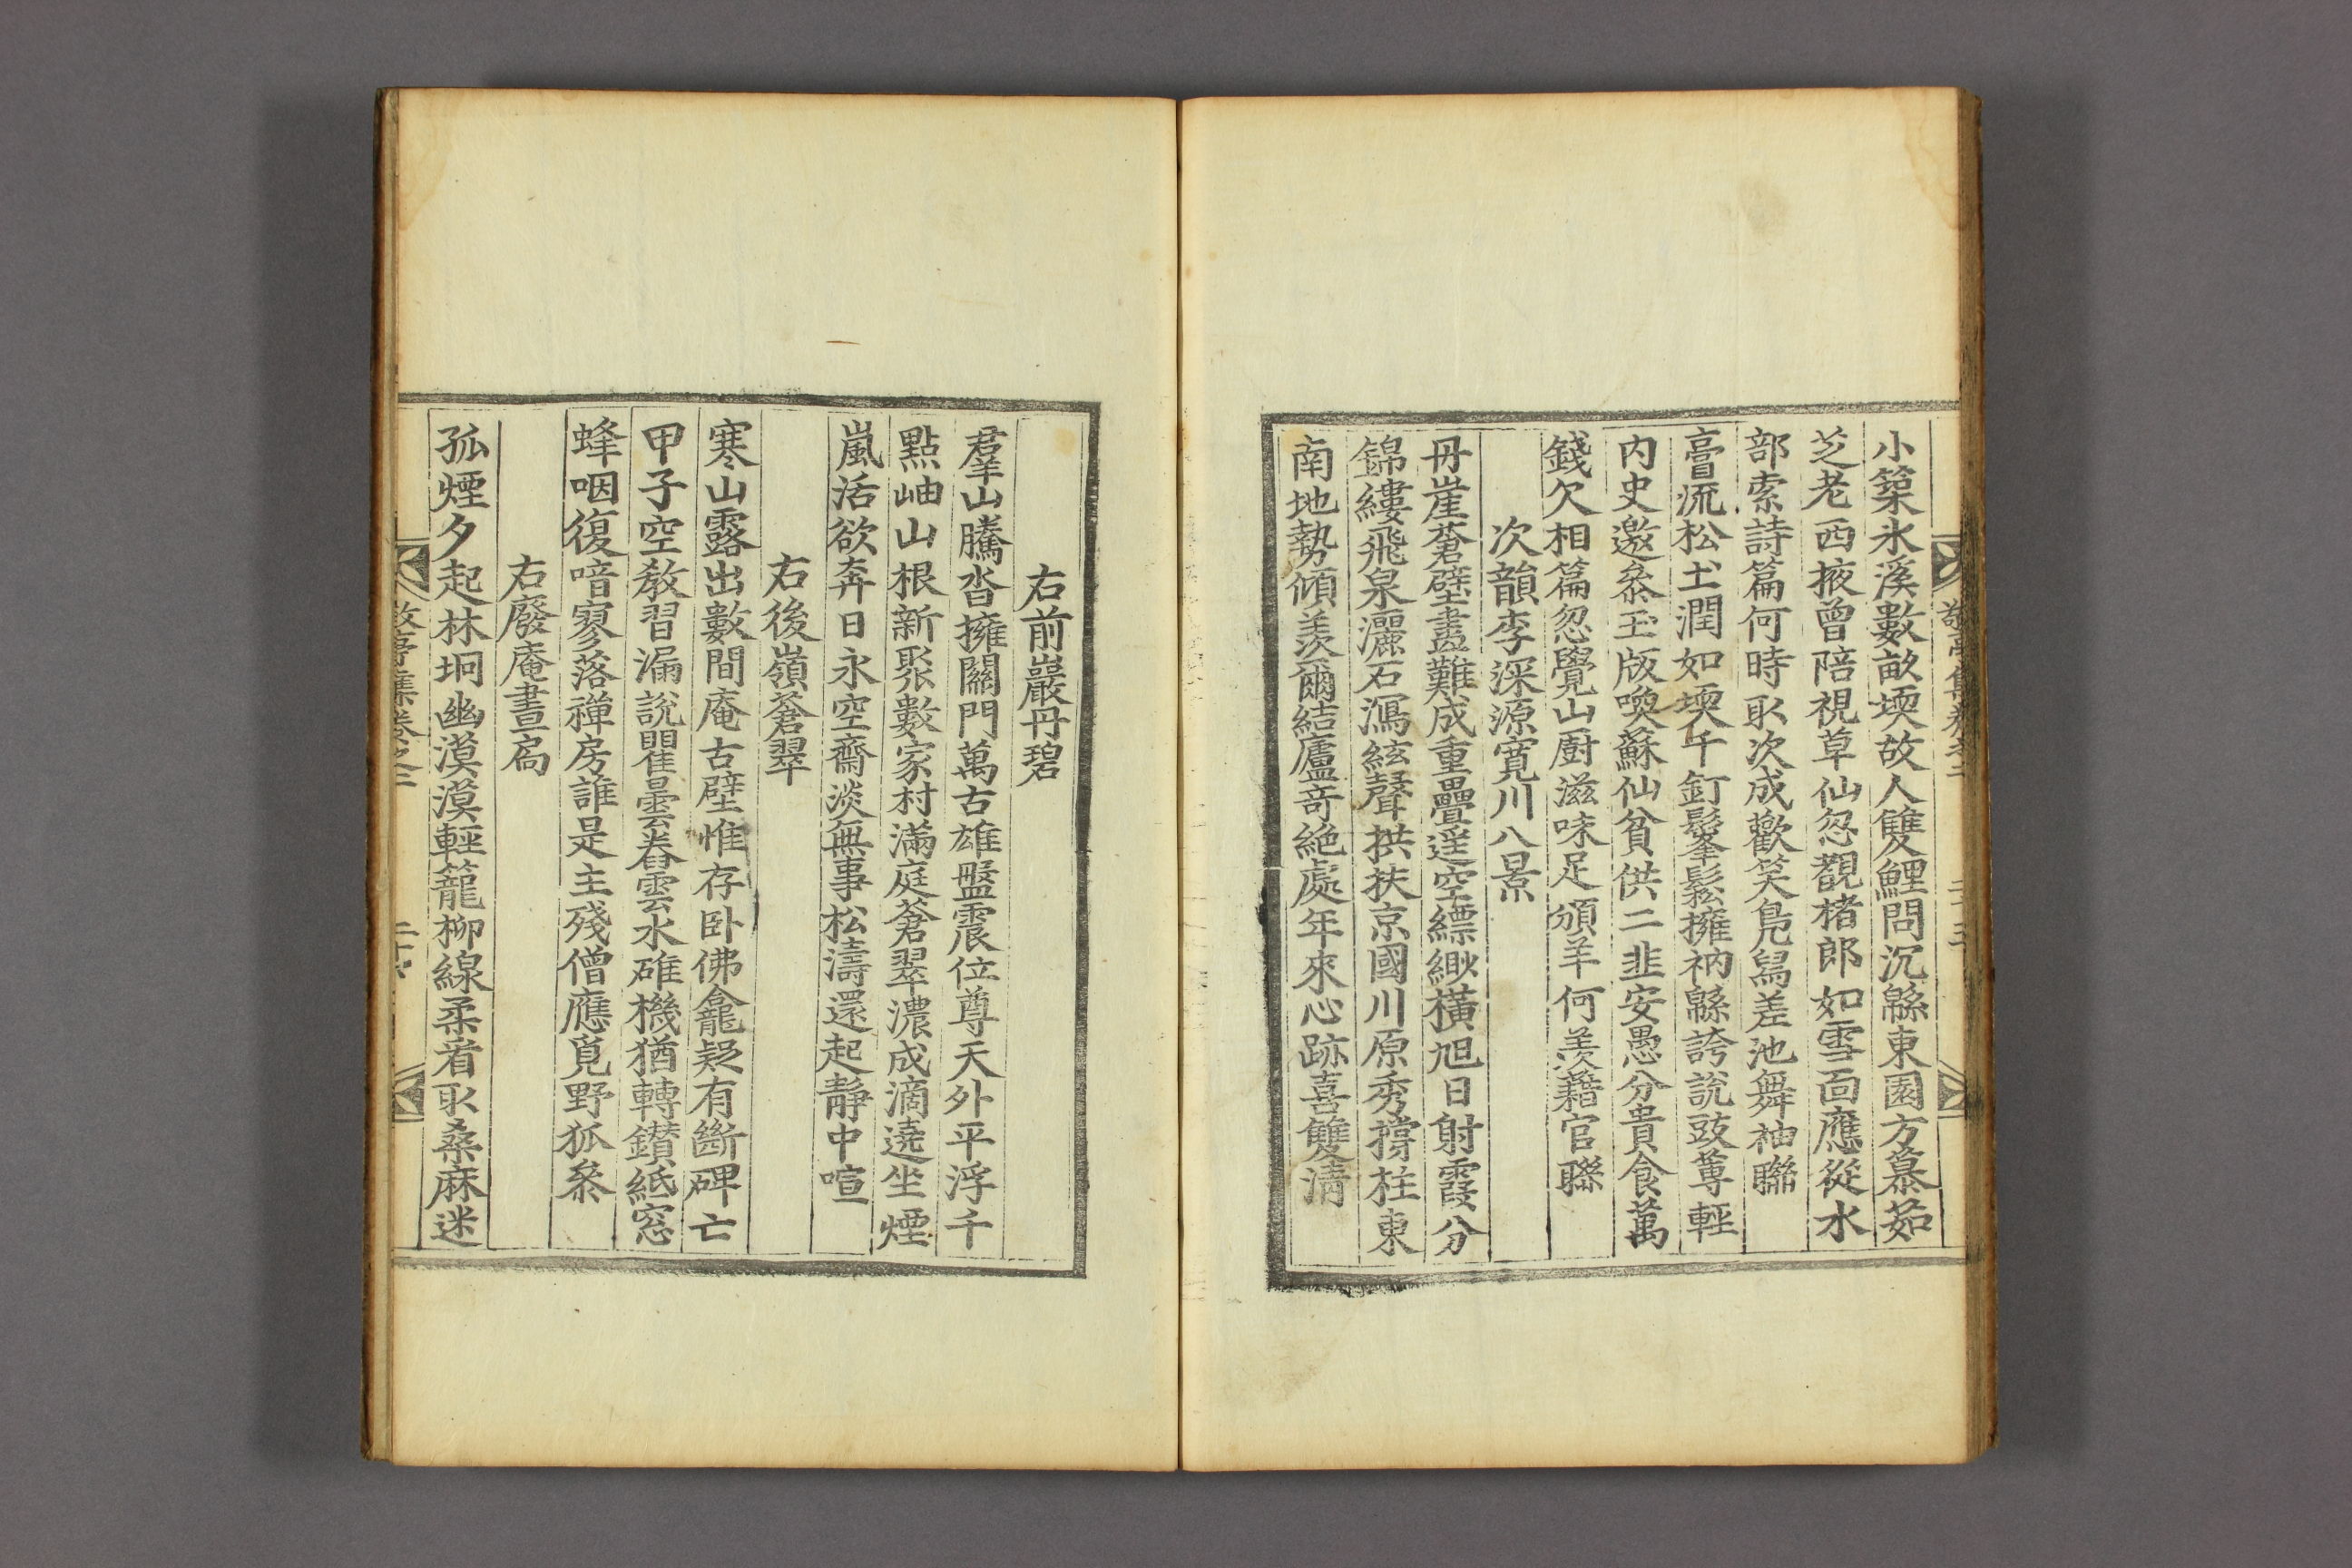 敬亭集卷之二
二十五
小築氷溪數畝堧故人雙鯉問沉緜東園方慕茹
芝老西掖曾陪視草仙忽覩楮郎如雪面應從水
部索詩篇何時取次成歡笑鳧舃差池舞袖聯
膏流松土潤如堧千釘鬈鬆擁衲緜誇說豉蓴輕
內史邀叅玉版喚蘇仙貧供二韭安愚分貴食萬
錢欠相篇忽覺山厨滋味足頒羊何羨藉官聯
次韻李深源寬川八景
丹崖蒼壁畵難成重疊遙空縹緲橫旭日射霞分
錦縷飛泉灑石瀉絃聲拱扶京國川原秀撐柱東
南地勢傾羨爾結廬奇絶處年來心跡喜雙淸
右前巖丹碧
羣山騰沓擁關門萬古雄盤震位尊天外平浮千
點岫山根新聚數家村滿庭蒼翠濃成滴遶坐煙
嵐活欲奔日永空齋淡無事松濤還起靜中喧
右後嶺蒼翠
寒山露出數間庵古壁惟存卧佛龕疑有斷碑亡
甲子空敎習漏說瞿曇舂雲水碓機猶轉鑚紙窓
蜂咽復喑寥落禪房誰是主殘僧應覓野狐叅
右廢庵晝扃
孤煙夕起林坰幽漠漠輕籠柳線柔看取桑麻迷
敬亭集卷之二
二十六